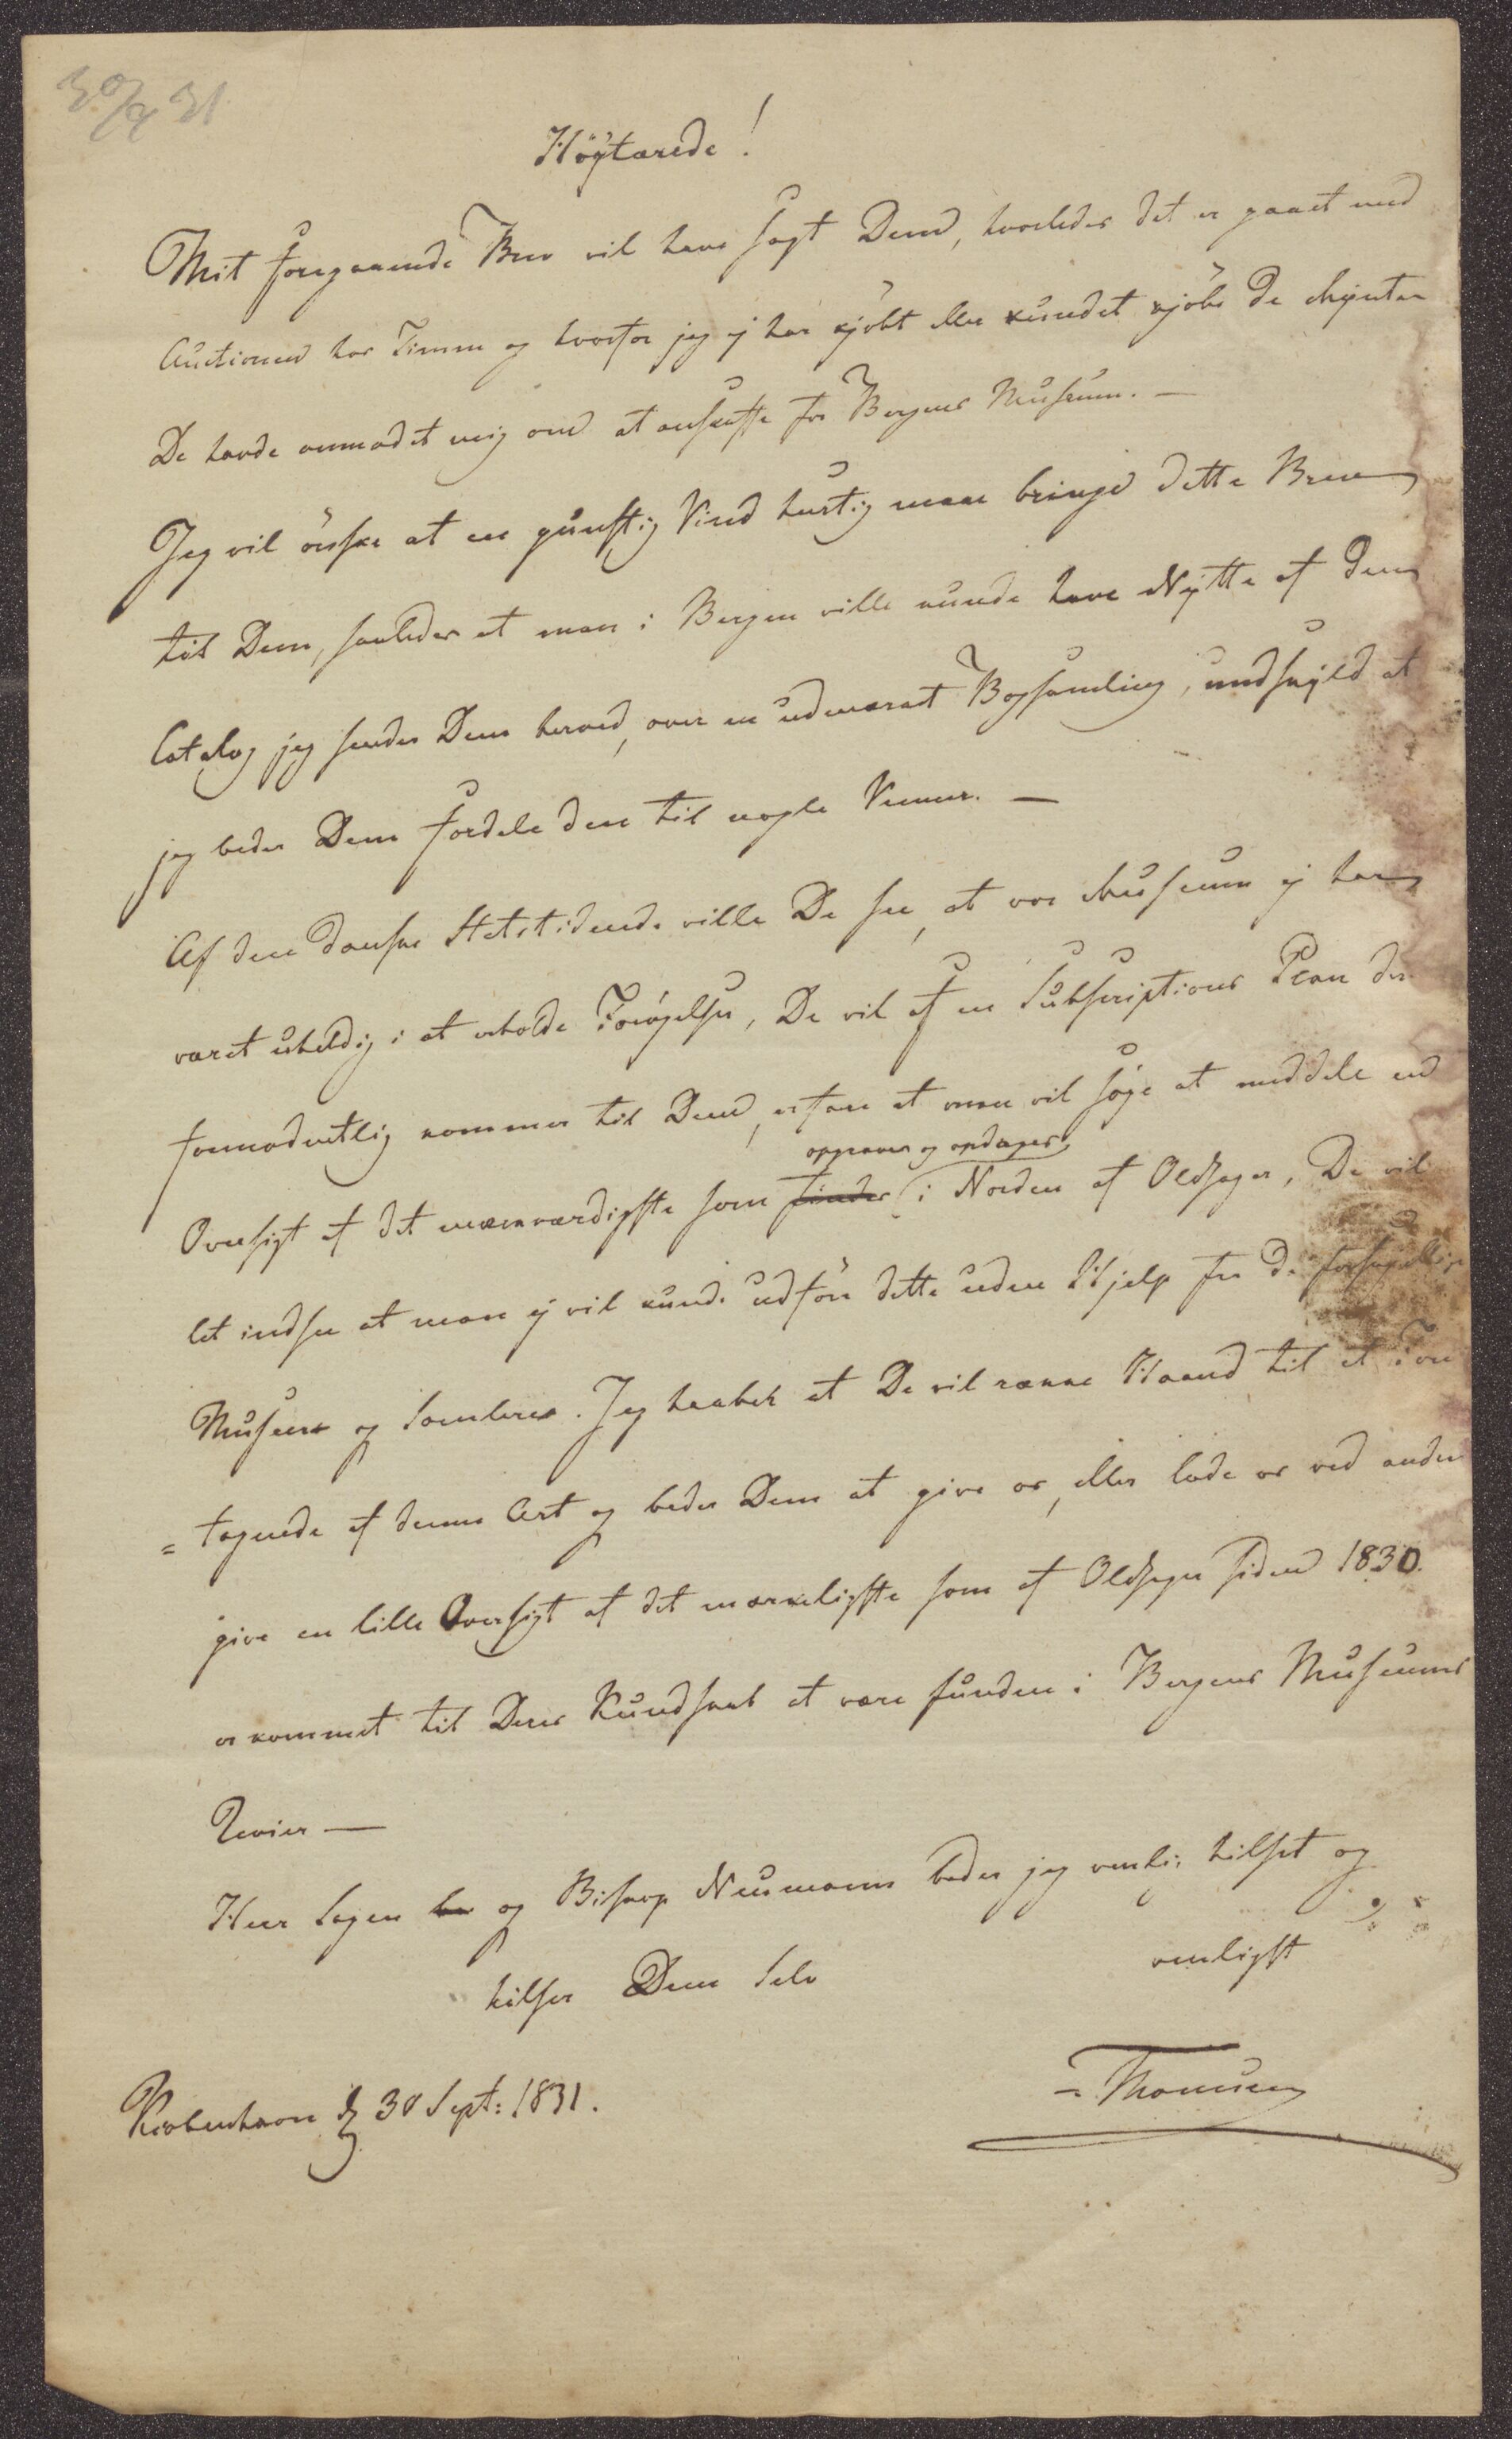 30/9 31
Höÿtærede!
Mit foregaaende Brev vil have sagt Dem, hvorledes det er gaaet med
Auctionen hos Timm og hvorfor jeg ej har kjöbt eller kundet kjöbe de Mynter
De havde anmodet mig om at anskaffe for Bergens Museum. —
Jeg vil önske at en gunstig Vind hurtig maae bringe dette Brev
til Dem, saaledes at man i Bergen ville kunde have Nÿtte af den
Catalog jeg sender Dem herved, over en udmærket Bogsamling, undskÿld at
jeg beder Dem fordele den til nogle Venner. —
Af den danske Statstidende ville De see, at vor Museum ej har
været uheldig i at erholde Forögelser, De vil af en Subscriptions Plan der
formodentlig kommer til Dem, erfare at man vil söge at meddele en
opgraves og opdages
Oversigt af det mærkværdigste som findes i Norden af Oldsager, De vil
let indsee at man ej vil kunde udföre dette uden Hjelp fra de forskjellige
Museer og Samlere. Jeg haaber at De vil række Haand til et Fore
= tagende af denne Art og beder Dem at give os, eller lade os ved andre
give en lille Oversigt af det mærkeligste som af Oldsager siden 1830.
er kommet til Deres Kundskab at være funden i Bergens Museums
Revier —
Herr Sagen og Biskop Neumann beder jeg venlig hilset og
hilser Dem Selv venligst
Thomsen
Kiöbenhavn d 30 Sept: 1831.